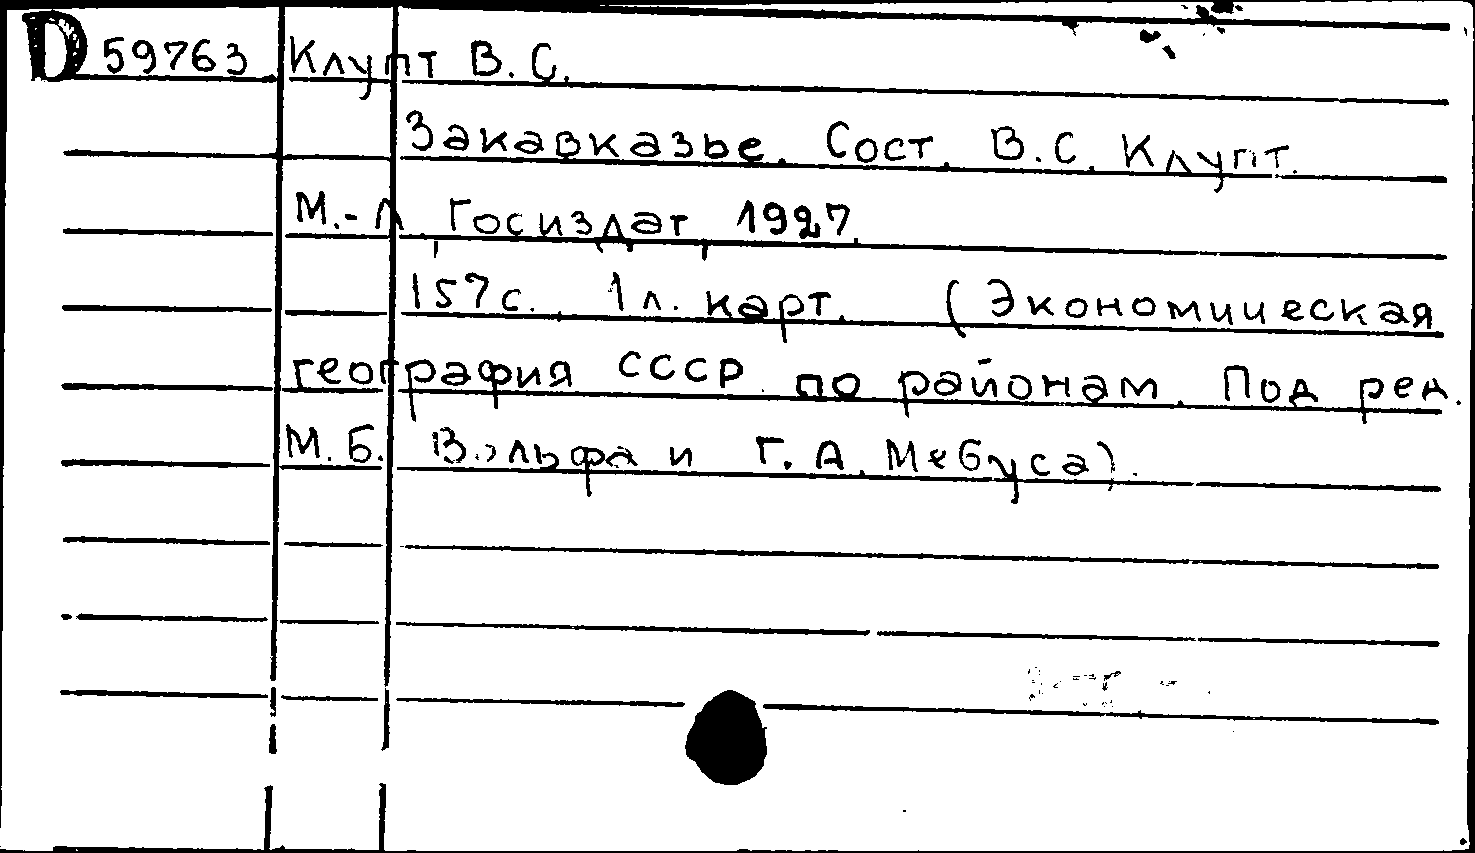 D 59763 Клупт В. С.
Закавказье. Сост. В. С. Клупт.
М.-Л., Госиздат, 1927.
157 с., 1 л. карт. (Экономическая
география СССР по районам. Под ред.
М. Б. Вольфа и Г. А. Мебуса).